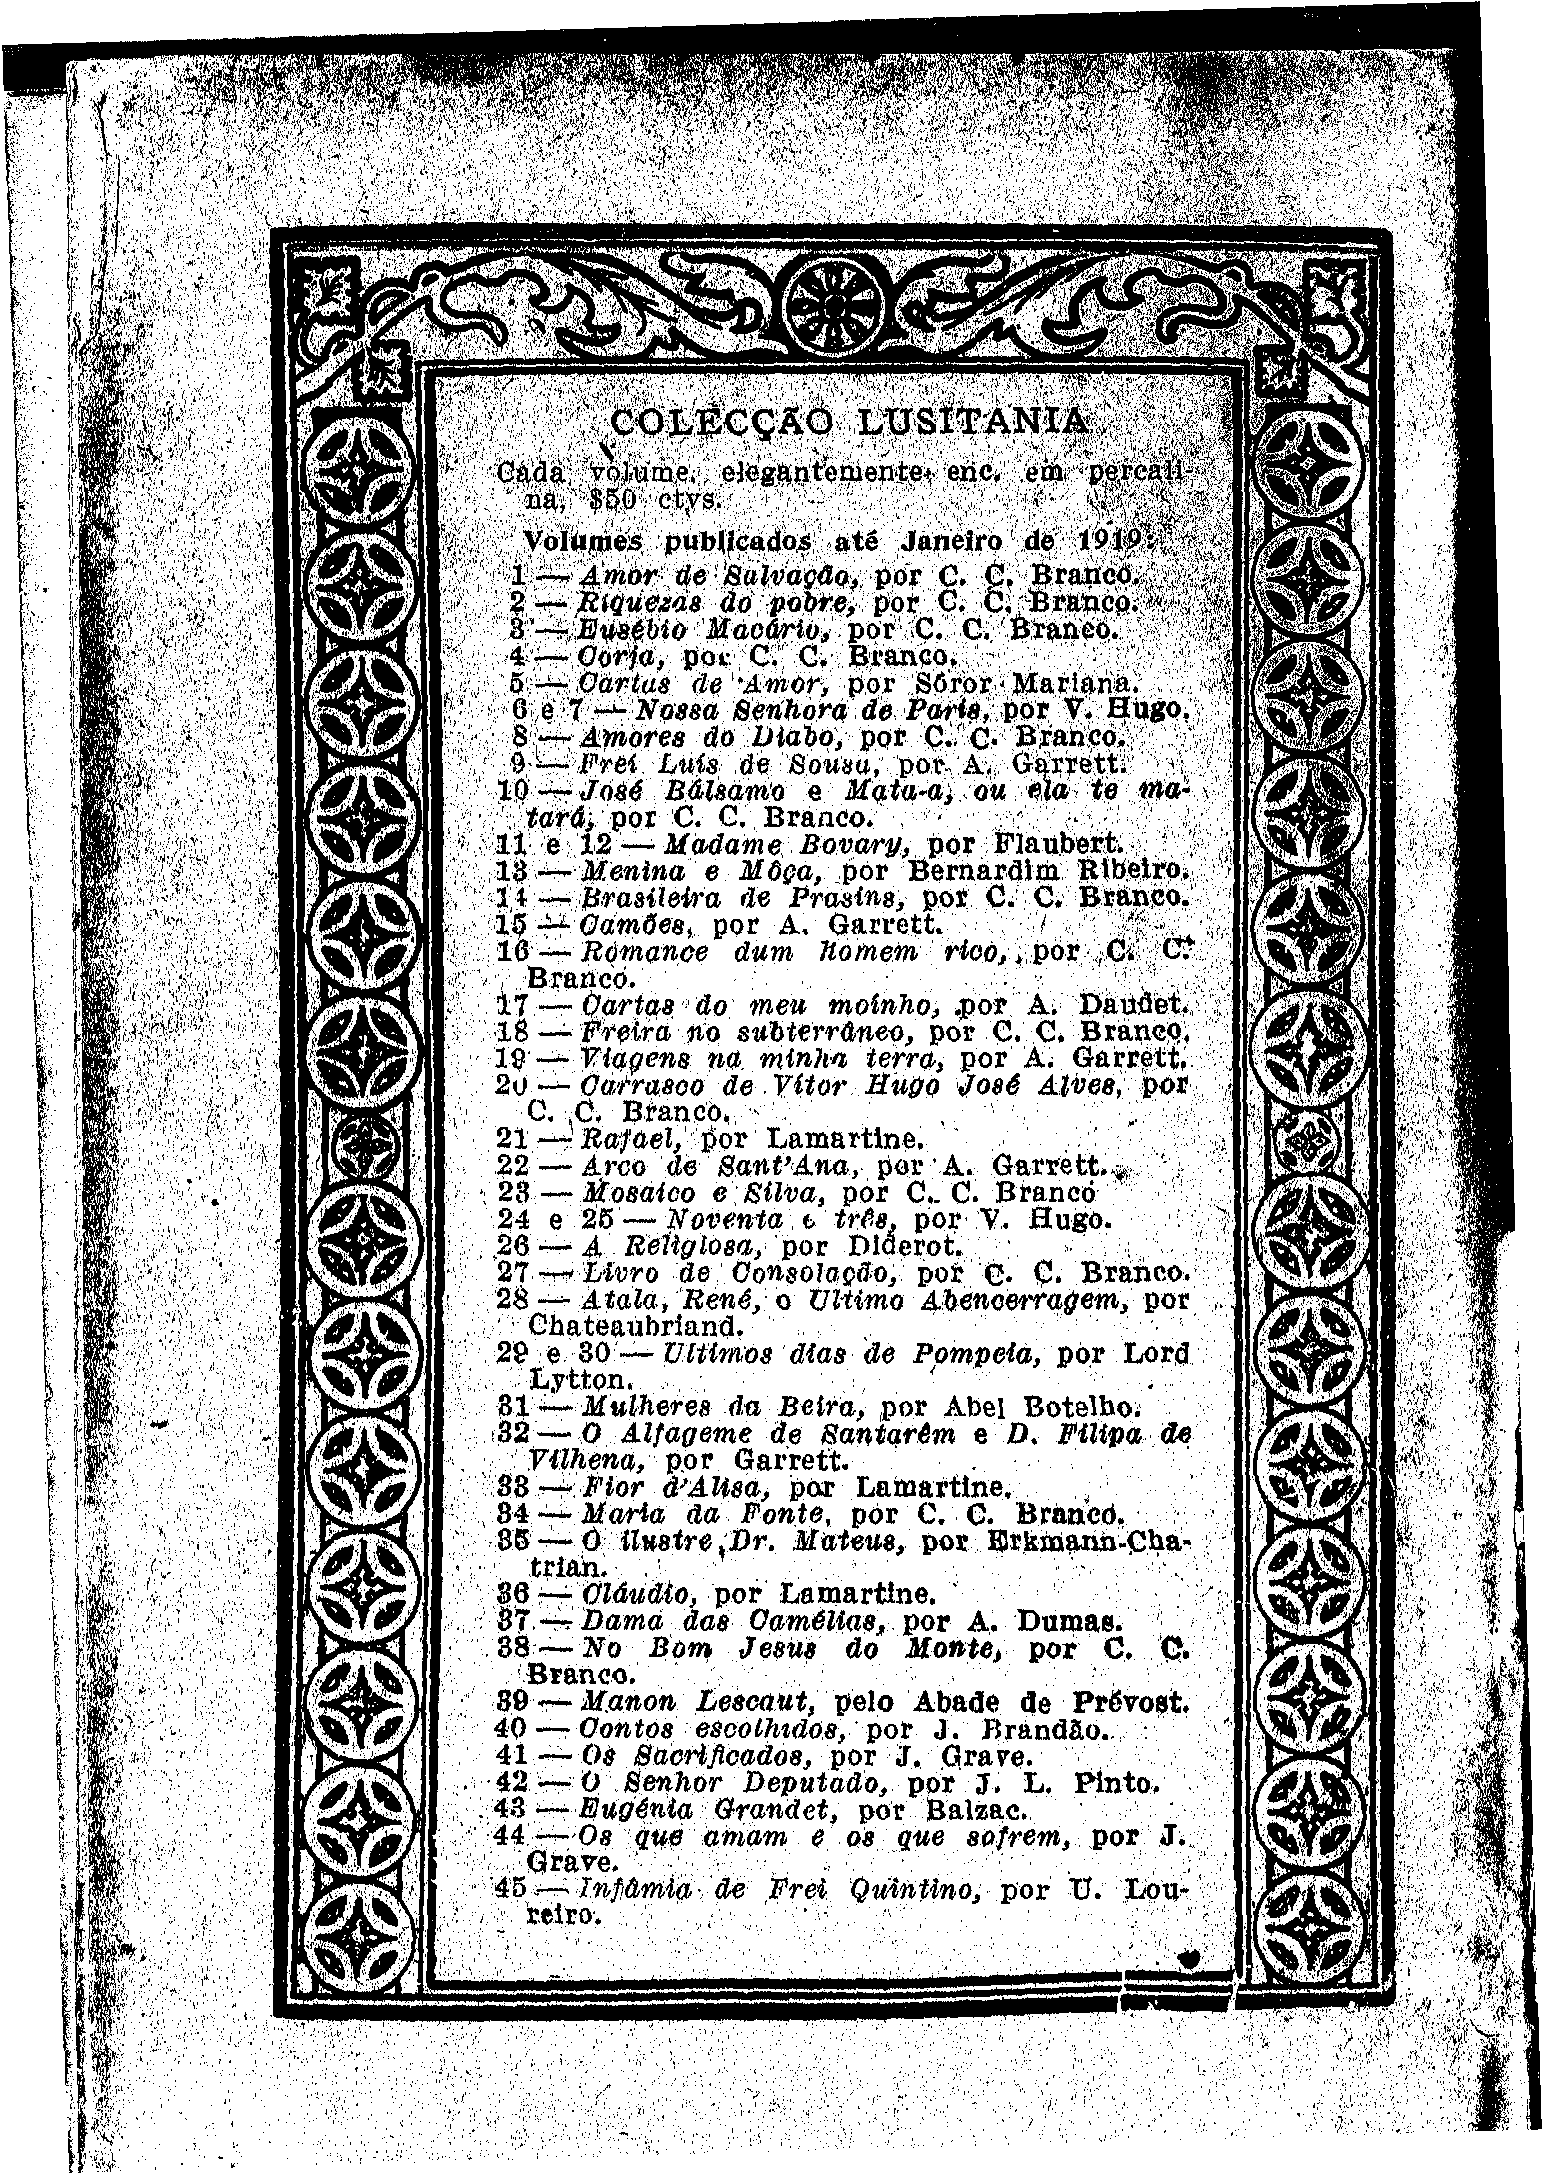 COLECÇÃO LUSITANIA
Cada volume, elegantemente enc. em percali-
na, $50 ctvs.
Volumes publicados até Janeiro de 1919:
1 — Amor de Salvação, por C. C. Branco.
2 — Riquezas do pobre, por C. C. Branco.
3 — Eusébio Macário, por C. C. Branco.
4 — Corja, por C. C. Branco.
5 — Cartas de Amor, por Sóror Mariana.
6 e 7 — Nossa Senhora de Paris, por V. Hugo.
8 — Amores do Diabo, por C. C. Branco.
9 — Frei Luís de Sousa, por A. Garrett.
10 — José Bálsamo e Mata-a, ou ela te ma-
tará, por C. C. Branco.
11 e 12 — Madame Bovary, por Flaubert.
13 — Menina e Môça, por Bernardim Ribeiro.
14 — Brasileira de Prasins, por C. C. Branco.
15 — Camões, por A. Garrett.
16 — Romance dum homem rico, por C. C.
Branco.
17 — Cartas do meu moinho, por A. Daudet.
18 — Freira no subterrâneo, por C. C. Branco.
19 — Viagens na minha terra, por A. Garrett.
20 — Carrasco de Vítor Hugo José Alves, por
C. C. Branco.
21 — Rafael, por Lamartine.
22 — Arco de Sant'Ana, por A. Garrett.
23 — Mosaico e Silva, por C. C. Branco
24 e 25 — Noventa e três, por V. Hugo.
26 — A Religiosa, por Diderot.
27 — Livro de Consolação, por C. C. Branco.
28 — Atala, René, o Ultimo Abencerragem, por
Chateaubriand.
29 e 30 — Ultimos dias de Pompeia, por Lord
Lytton.
31 — Mulheres da Beira, por Abel Botelho.
32 — O Alfageme de Santarêm e D. Filipa de
Vilhena, por Garrett.
33 — Fior d'Alisa, por Lamartine.
34 — Maria da Fonte, por C. C. Branco.
35 — O ilustre Dr. Mateus, por Erkmann-Cha-
trian.
36 — Cláudio, por Lamartine.
37 — Dama das Camélias, por A. Dumas.
38 — No Bom Jesus do Monte, por C. C.
Branco.
39 — Manon Lescaut, pelo Abade de Prévost.
40 — Contos escolhidos, por J. Brandão.
41 — Os Sacrificados, por J. Grave.
42 — O Senhor Deputado, por J. L. Pinto.
43 — Eugénia Grandet, por Balzac.
44 — Os que amam e os que sofrem, por J.
Grave.
45 — Infâmia de Frei Quintino, por U. Lou-
reiro.